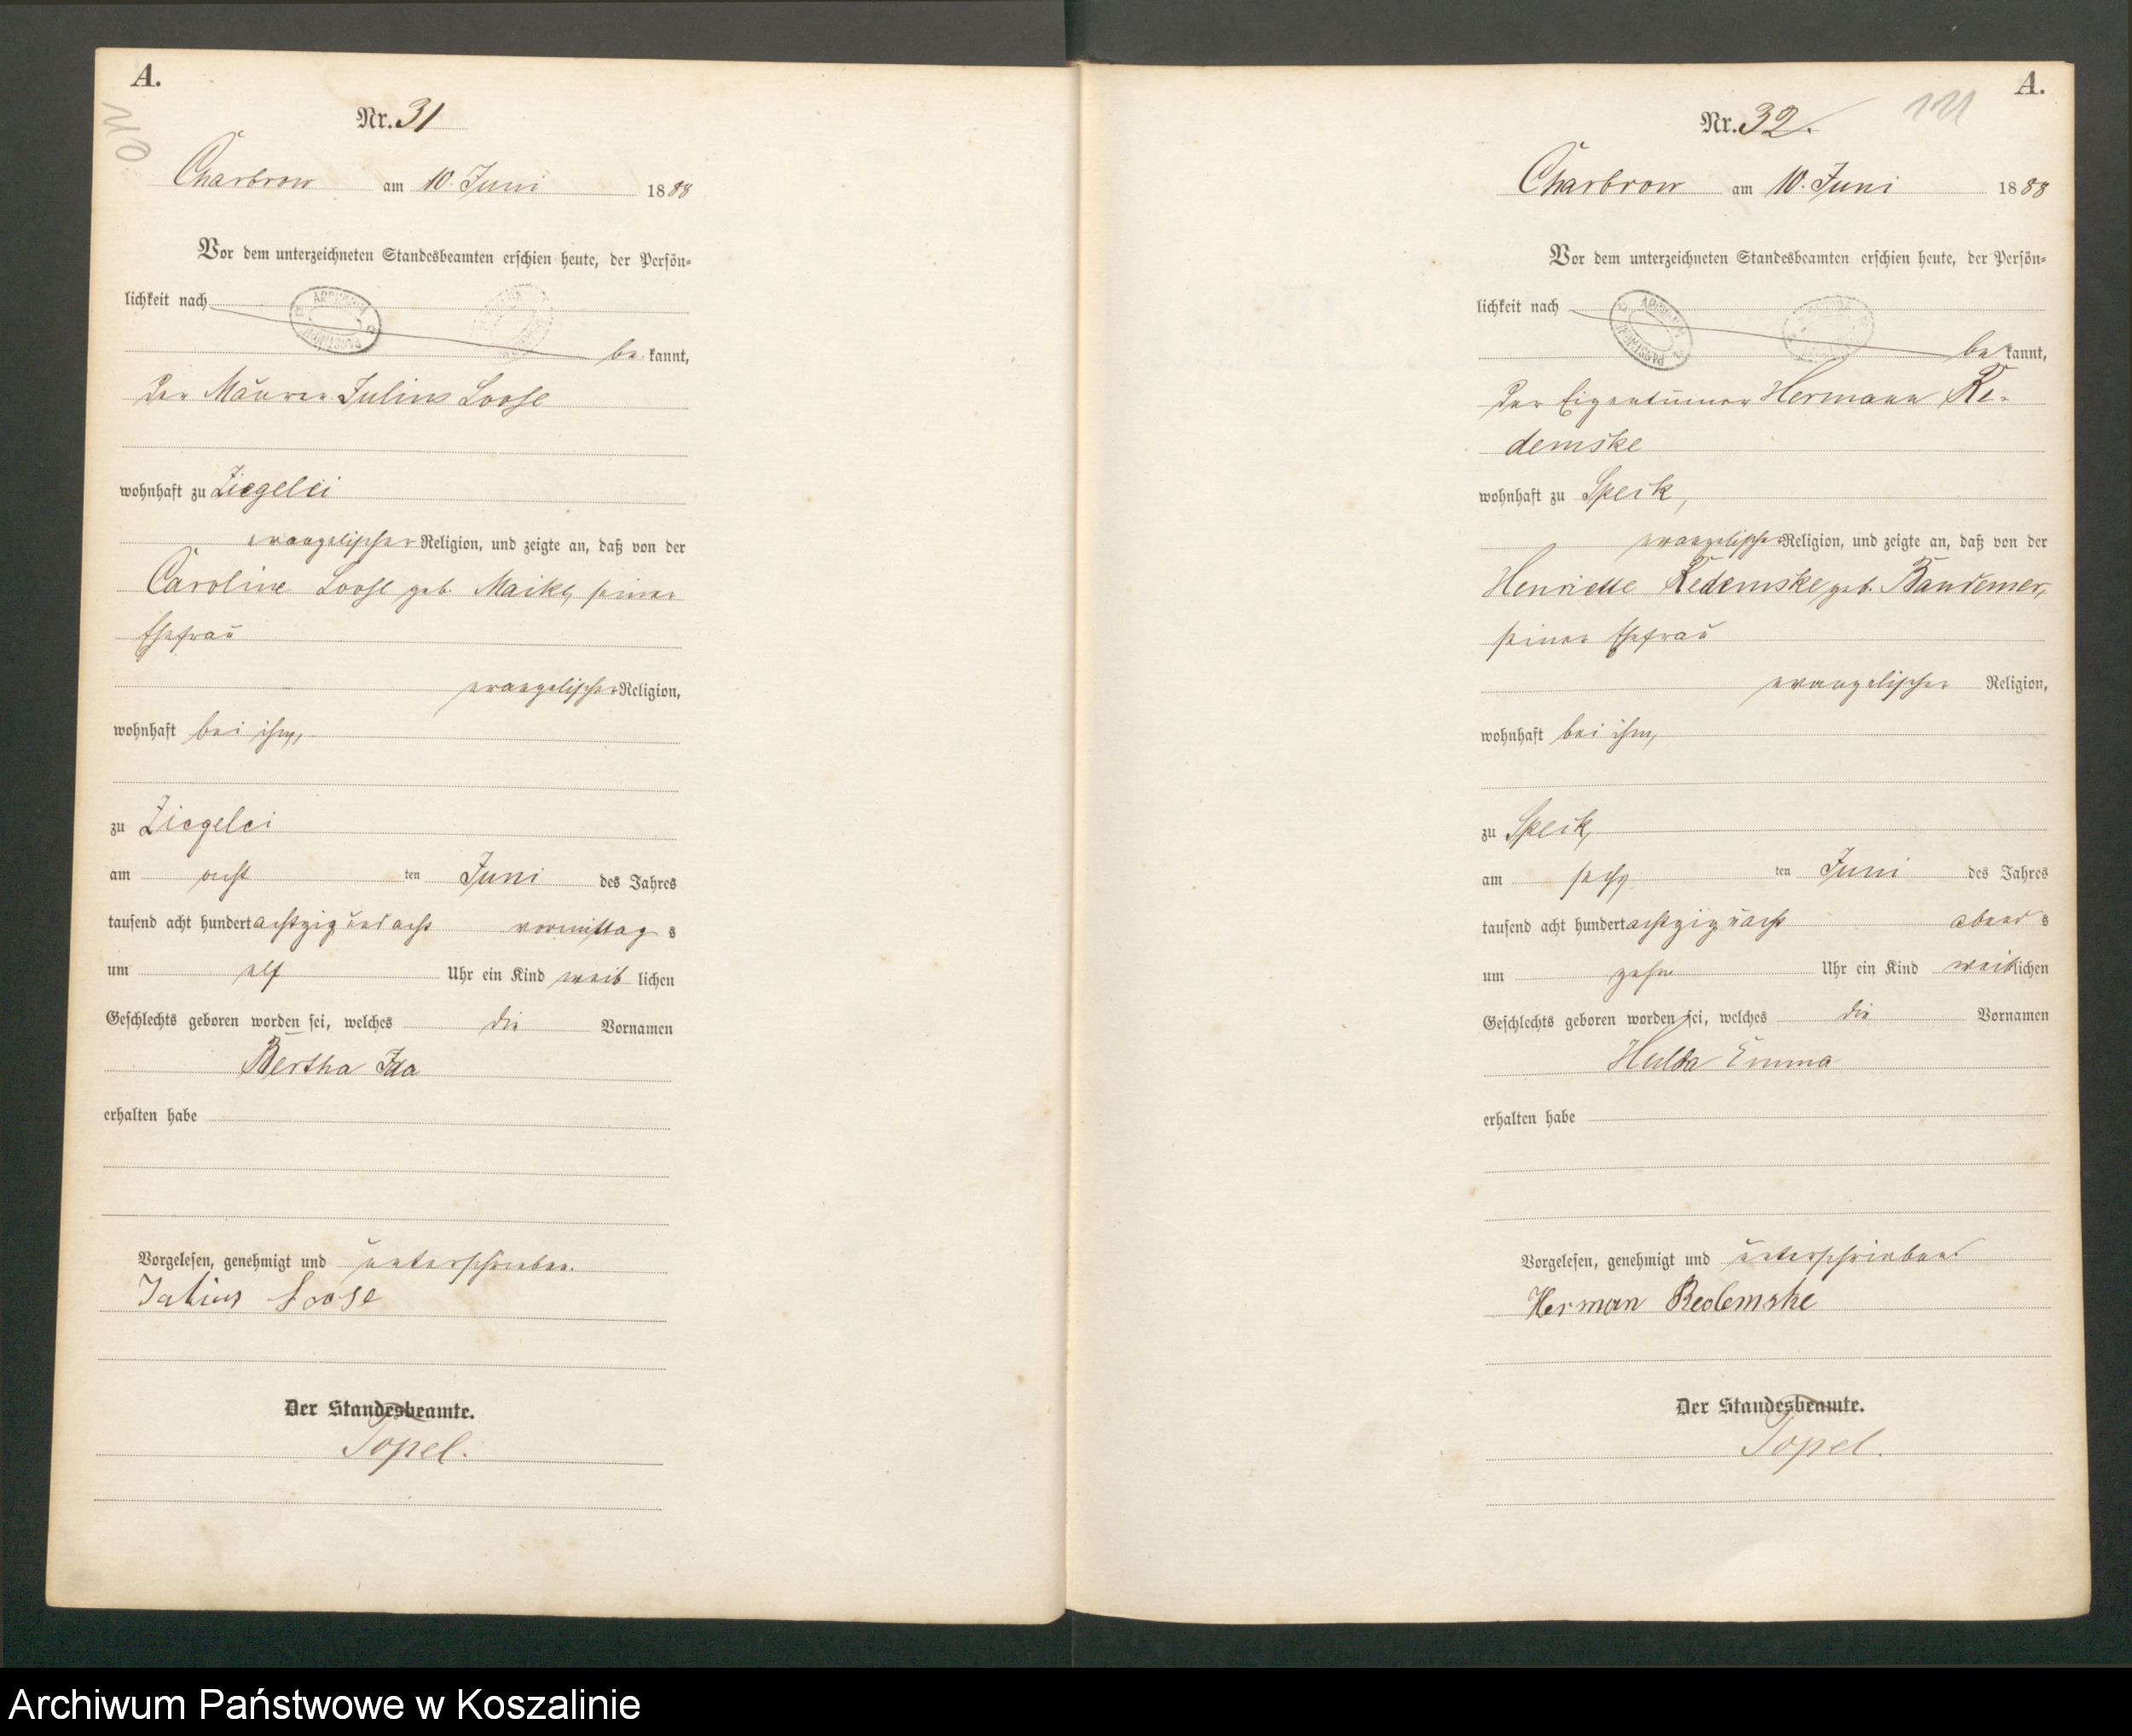 A.
Nr. 31
Charbrow am 10. Juni 1888
Vor dem unterzeichneten Standesbeamten erschien heute, der Persön-
lichkeit nach
be kannt,
der Maurer Julius Loose
wohnhaft zu Ziegelei
evangelischer Religion, und zeigte an, daß von der
Caroline Loose geb. Maike, seiner
Ehefrau
evangelischer Religion,
wohnhaft bei ihm,
zu Ziegelei
am acht ten Juni des Jahres
tausend acht hundert achtzig und acht vormittag s
um elf Uhr ein Kind weib lichen
Geschlechts geboren worden sei, welches die Vornamen
Bertha Ida
erhalten habe
Vorgelesen, genehmigt und unterschrieben.
Julius Loose
Der Standesbeamte.
Topel.
A.
121
Nr. 32.
Charbrow am 10. Juni 1888
Vor dem unterzeichneten Standesbeamten erschien heute, der Persön-
lichkeit nach
be kannt,
der Eigentümer Hermann Re-
demske
wohnhaft zu Speck,
evangelischer Religion, und zeigte an, daß von der
Henriette Redemske geb. Bandemer,
seiner Ehefrau
evangelischer Religion,
wohnhaft bei ihm,
zu Speck,
am sechs ten Juni des Jahres
tausend acht hundert achtzig u acht abend s
um zehn Uhr ein Kind weib lichen
Geschlechts geboren worden sei, welches die Vornamen
Hulda Emma
erhalten habe
Vorgelesen, genehmigt und unterschrieben
Herman Redemske
Der Standesbeamte.
Topel.
Archiwum Państwowe w Koszalinie